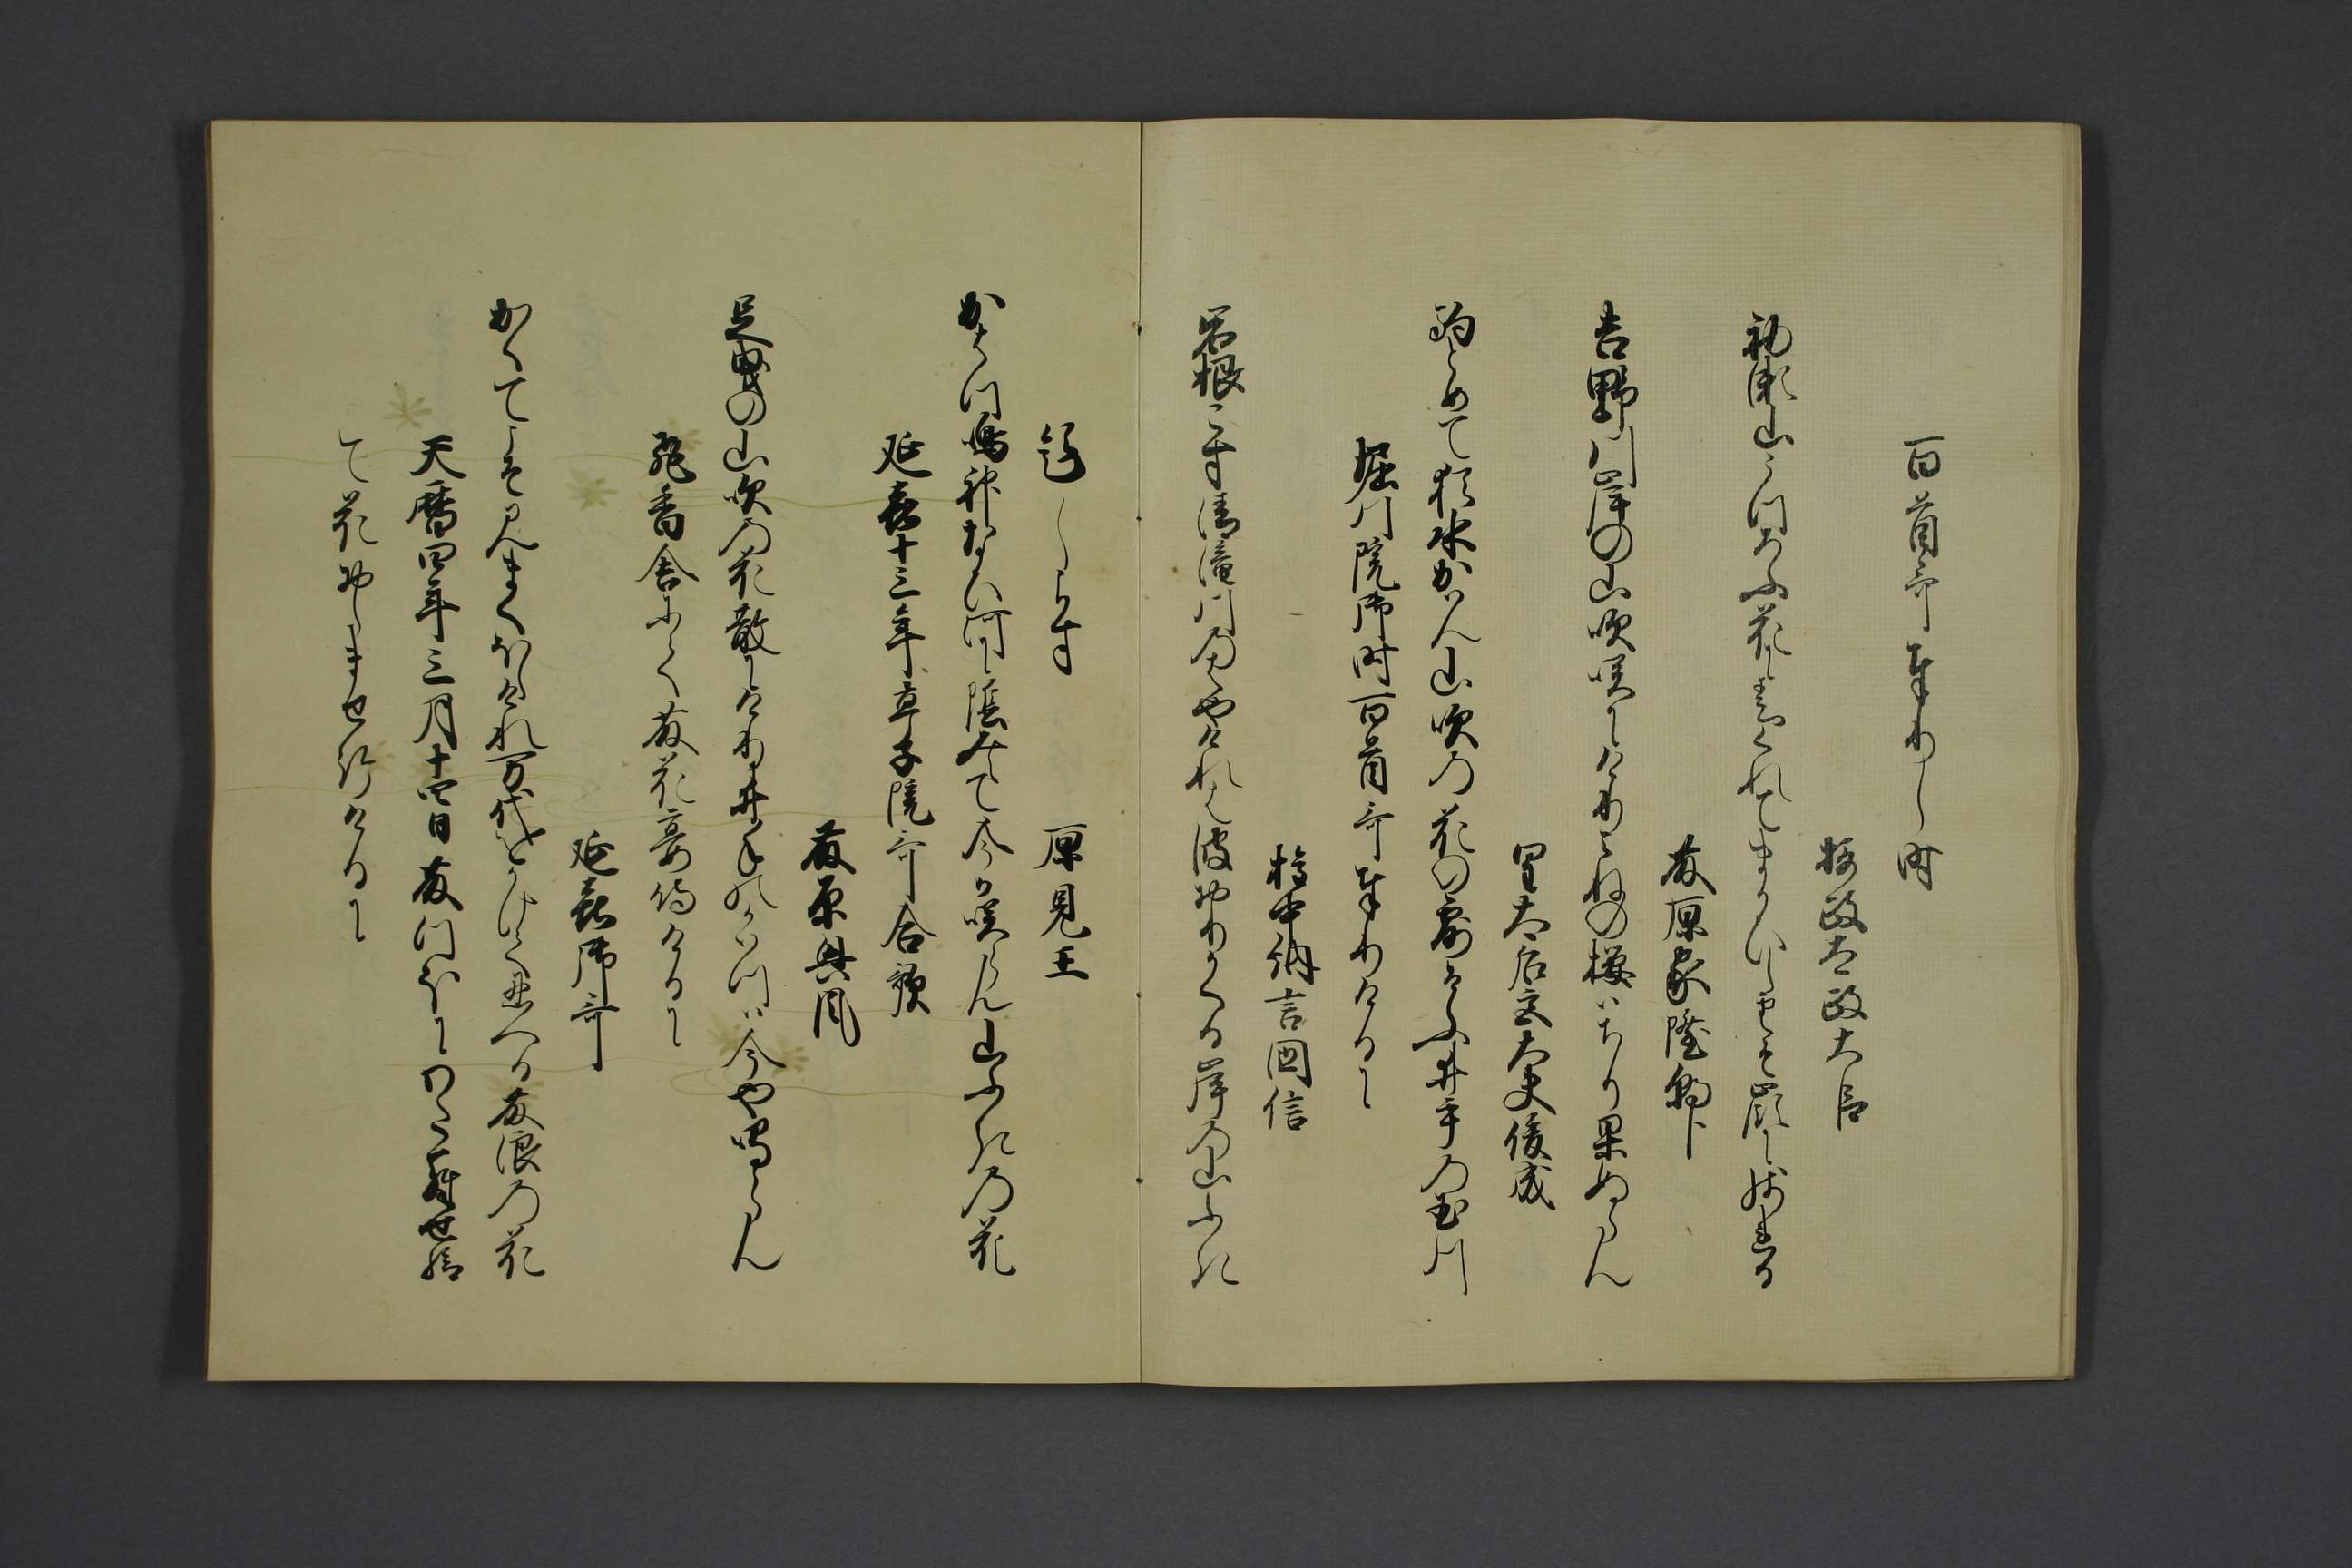 百首哥奉りし時
摂政太政大臣
初瀬山うつろふ花に春くれてまかひし雲そ嶺に残れる
藤原家隆朝臣
吉野川岸の山吹咲にけりみねの桜はちり果ぬらん
皇太后宮大夫俊成
駒とめて猶水かはん山吹の花の露そふ井手の玉川
堀川院御時百首哥奉りけるに
権中納言国信
岩根こす清滝川のはやけれは波おりかくる岸の山ふき
題しらす
厚見王
かはつ鳴神なひ河に陰みえて今か咲らん山ふきの花
延喜十三年亭子院哥合哥
藤原興風
足曳の山吹の花散にけり井手のかはつは今や鳴らん
飛香舎にて藤花宴侍けるに
延喜御哥
かくてこそ見まくほしけれ万代をかけて忍へる藤浪の花
天暦四年三月十四日藤つほにわたらせ給
て花おしませ給けるに